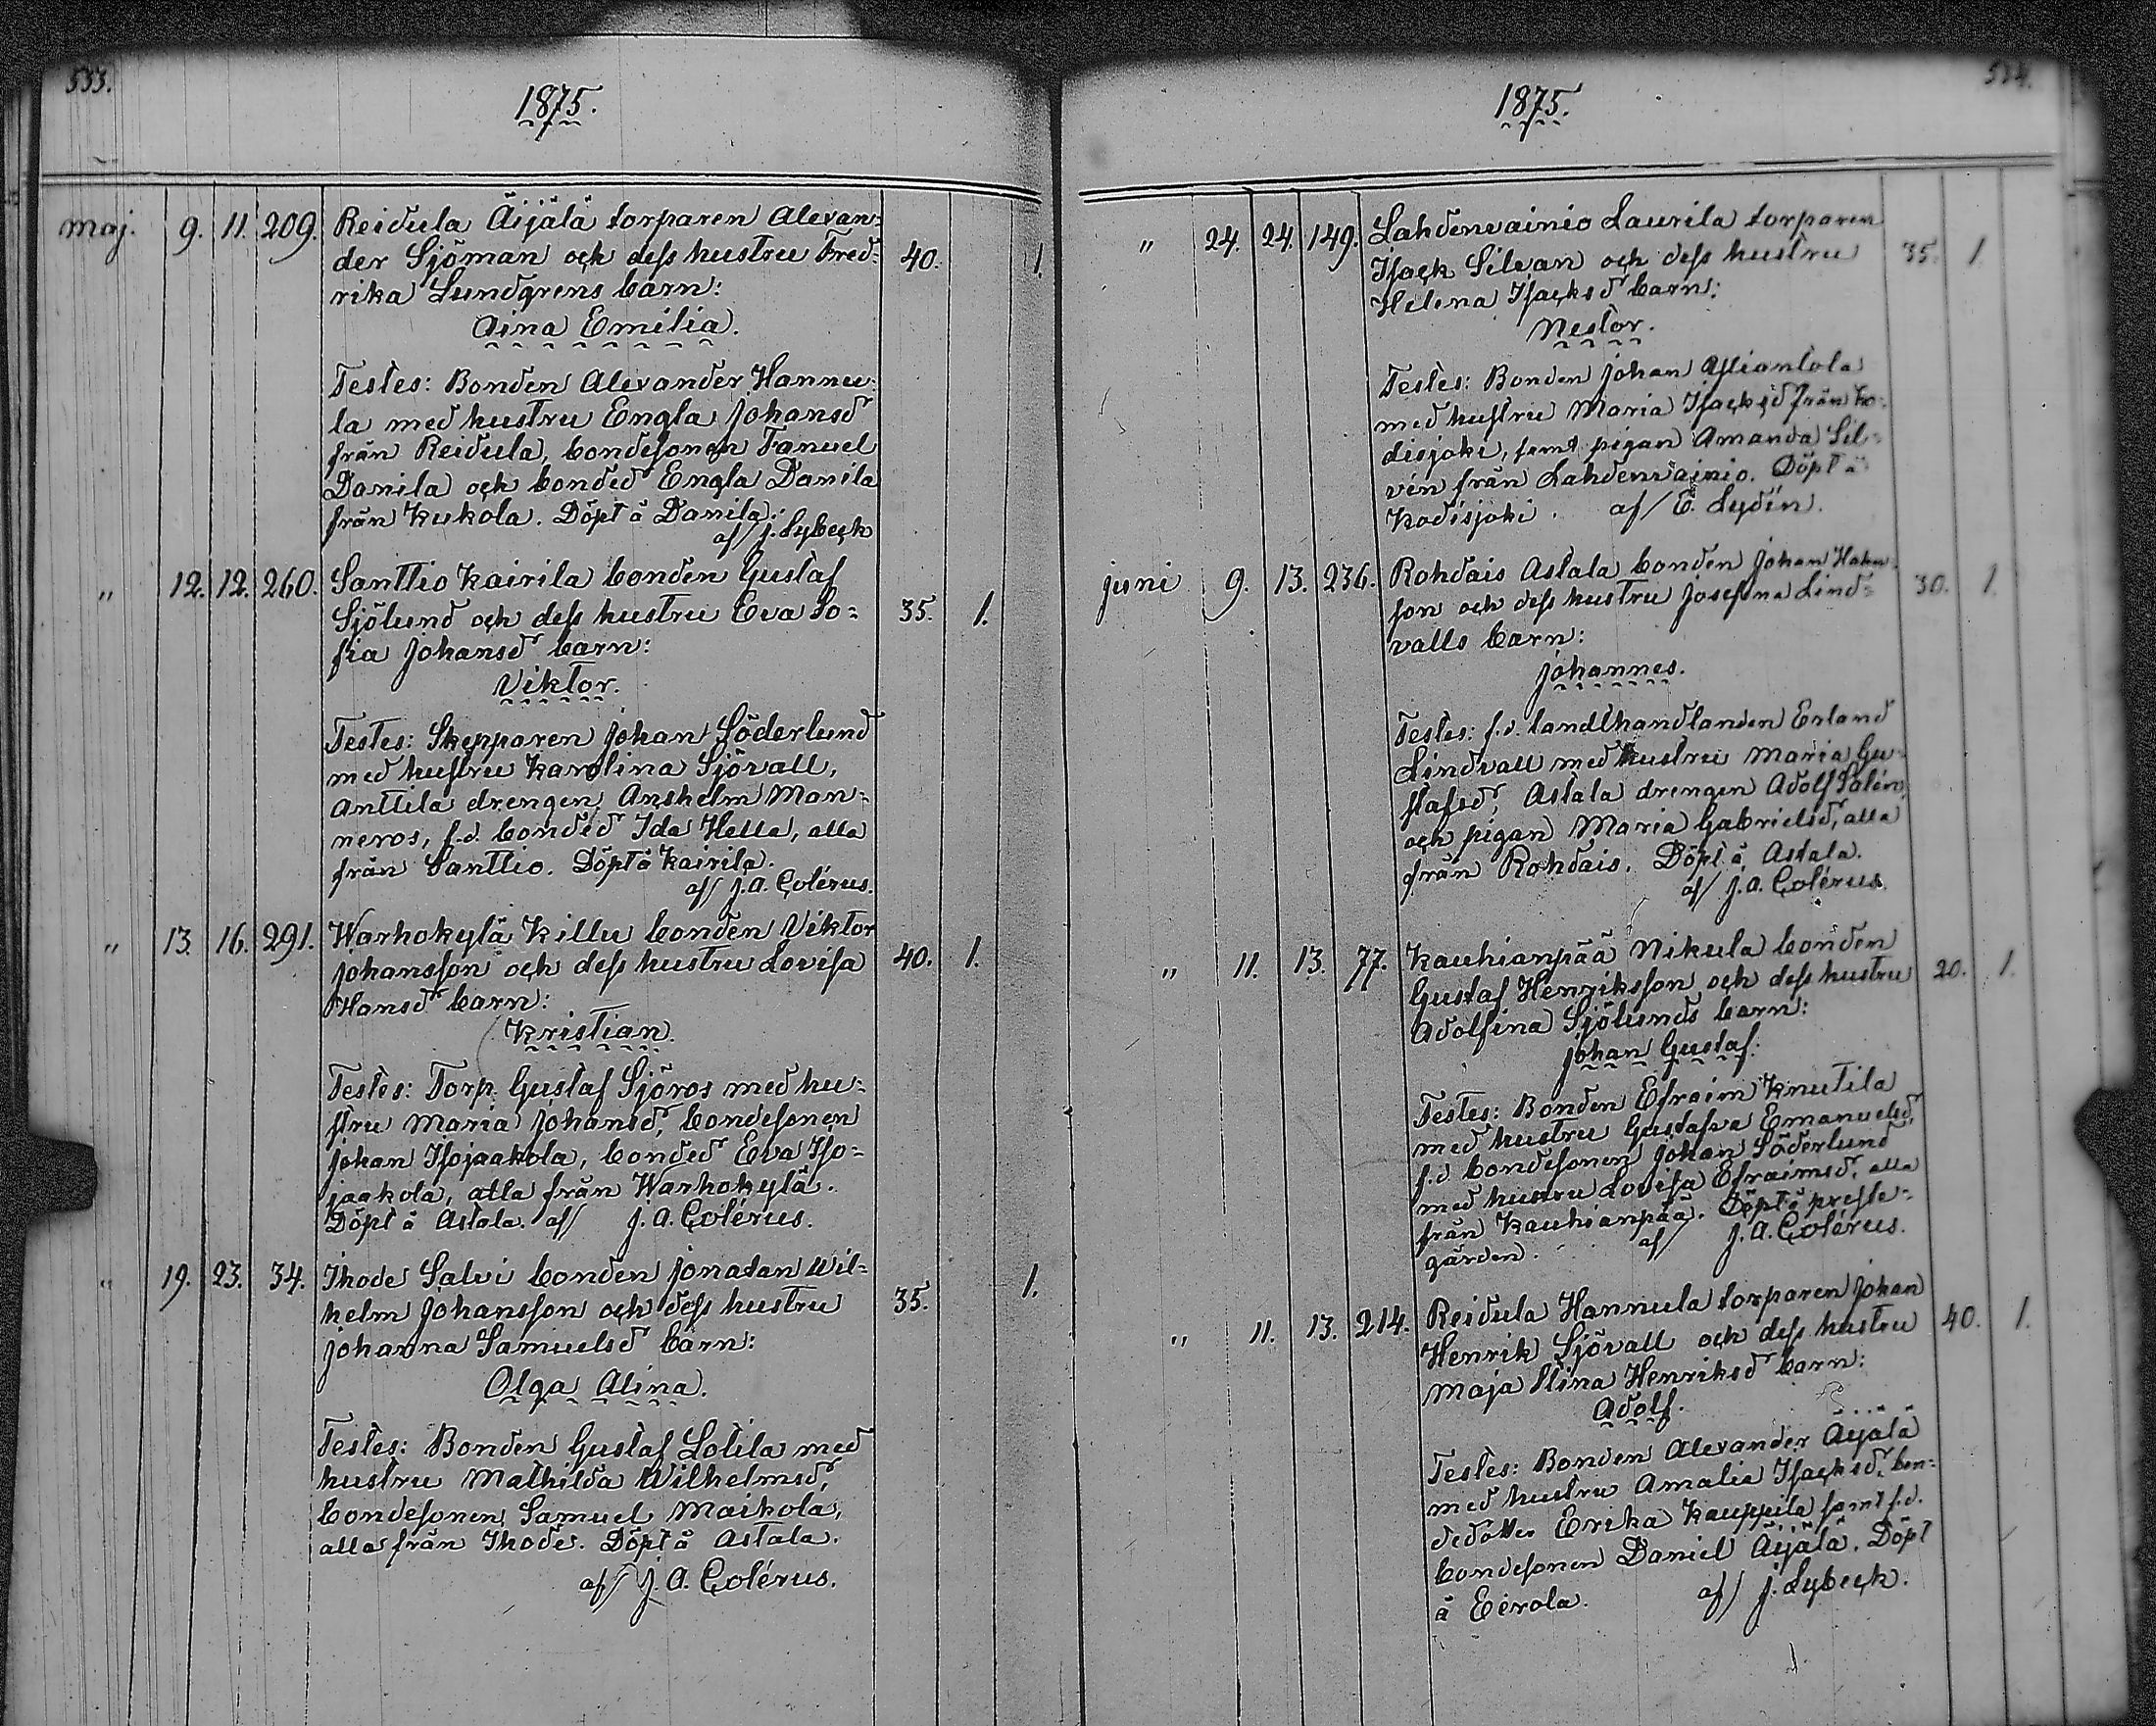 533.
1875.
maj. 9. 11. 209. Reidula Äijälä torparen Alexan-
der Sjöman och dess hustru Fred- 40. 1.
rika Lundgrens barn:
Aina Emilia.
Testes: Bonden Alexander Hannu-
la med hustru Engla Johansd
från Reidula, bondesonen Fanuel
Danila och bonded Engla Danila
från Kukola. Döpt å Danila.
af/ J. Lybeck
" 12. 12. 260. Santtio Kairila bonden Gustaf
Sjölund och dess hustru Eva So- 35. 1.
fia Johansd barn:
Viktor.
Testes: Skepparen Johan Söderlund
med hustru Karolina Sjövall,
Anttila drengen Anshelm Man-
neros, f.d. bonded Ida Hella, alla
från Santtio. Döpt å Kairila.
af/ J. A. Colérus.
" 13. 16. 291. Warhokylä Killu bonden Viktor
Johansson och dess hustru Lovisa 40. 1.
Hansd barn:
Kristian.
Testes: Torp. Gustaf Sjöros med hu-
stru Maria Johansd, bondesonen
Johan Isojaakola, bonded Eva Iso-
jaakola, alla från Warhokylä.
Döpt å Astala. af/ J. A. Colérus.
" 19. 23. 34. Ihode Salvi bonden Jonatan Wil-
helm Johansson och dess hustru 35. 1.
Johanna Samuelsd barn:
Olga Alina.
Testes: Bonden Gustaf Lotila med
hustru Mathilda Wilhelmsd,
bondesonen Samuel Maikola,
alla från Ihode. Döpt å Astala.
af/ J. A. Colérus.
534.
1875.
" 24. 24. 149. Lahdenvainio Laurila torparen
Isack Silvan och dess hustru 35. 1.
Helena Isacksd barn:
Nestor.
Testes: Bonden Johan Yliantola
med hustru Maria Isacksd från Ko-
disjoki, samt pigan Amanda Sil-
vén från Lahdenvainio. Döpt å
Kodisjoki. af/ E. Lydén.
juni 9. 13. 236. Rohdais Astala bonden Johan
son och dess hustru Josefina Lind- 30. 1.
valls barn:
Johannes.
Testes: f.d. landthandlanden Erland
Lindvall med hustru Maria Gu-
stafsd, Astala drengen Adolf Salén,
och pigan Maria Gabrielsd, alla
från Rohdais. Döpt å Astala.
af/ J. A. Colérus.
" 11. 13. 77. Kauhianpää Nikula bonden
Gustaf Henriksson och dess hustru 20. 1.
Adolfina Sjölunds barn:
Johan Gustaf.
Testes: Bonden Efraim Knutila
med hustru Gustafva Emanuelsd,
f.d. bondesonen Johan Söderlund
med hustru Lovisa Efraimsd, alla
från Kauhianpää. Döpt å preste-
gården. af/ J. A. Colérus.
" 11. 13. 214. Reidula Hannula torparen Johan
Henrik Sjövall och dess hustru 40. 1.
Maja Stina Henriksd barn:
Adolf.
Testes: Bonden Alexander Äijälä
med hustru Amalia Isacksd, bon-
dedotter Erika Kauppila samt f.d.
bondesonen Daniel Äijälä. Döpt
å Eerola. af/ J. Lybeck.